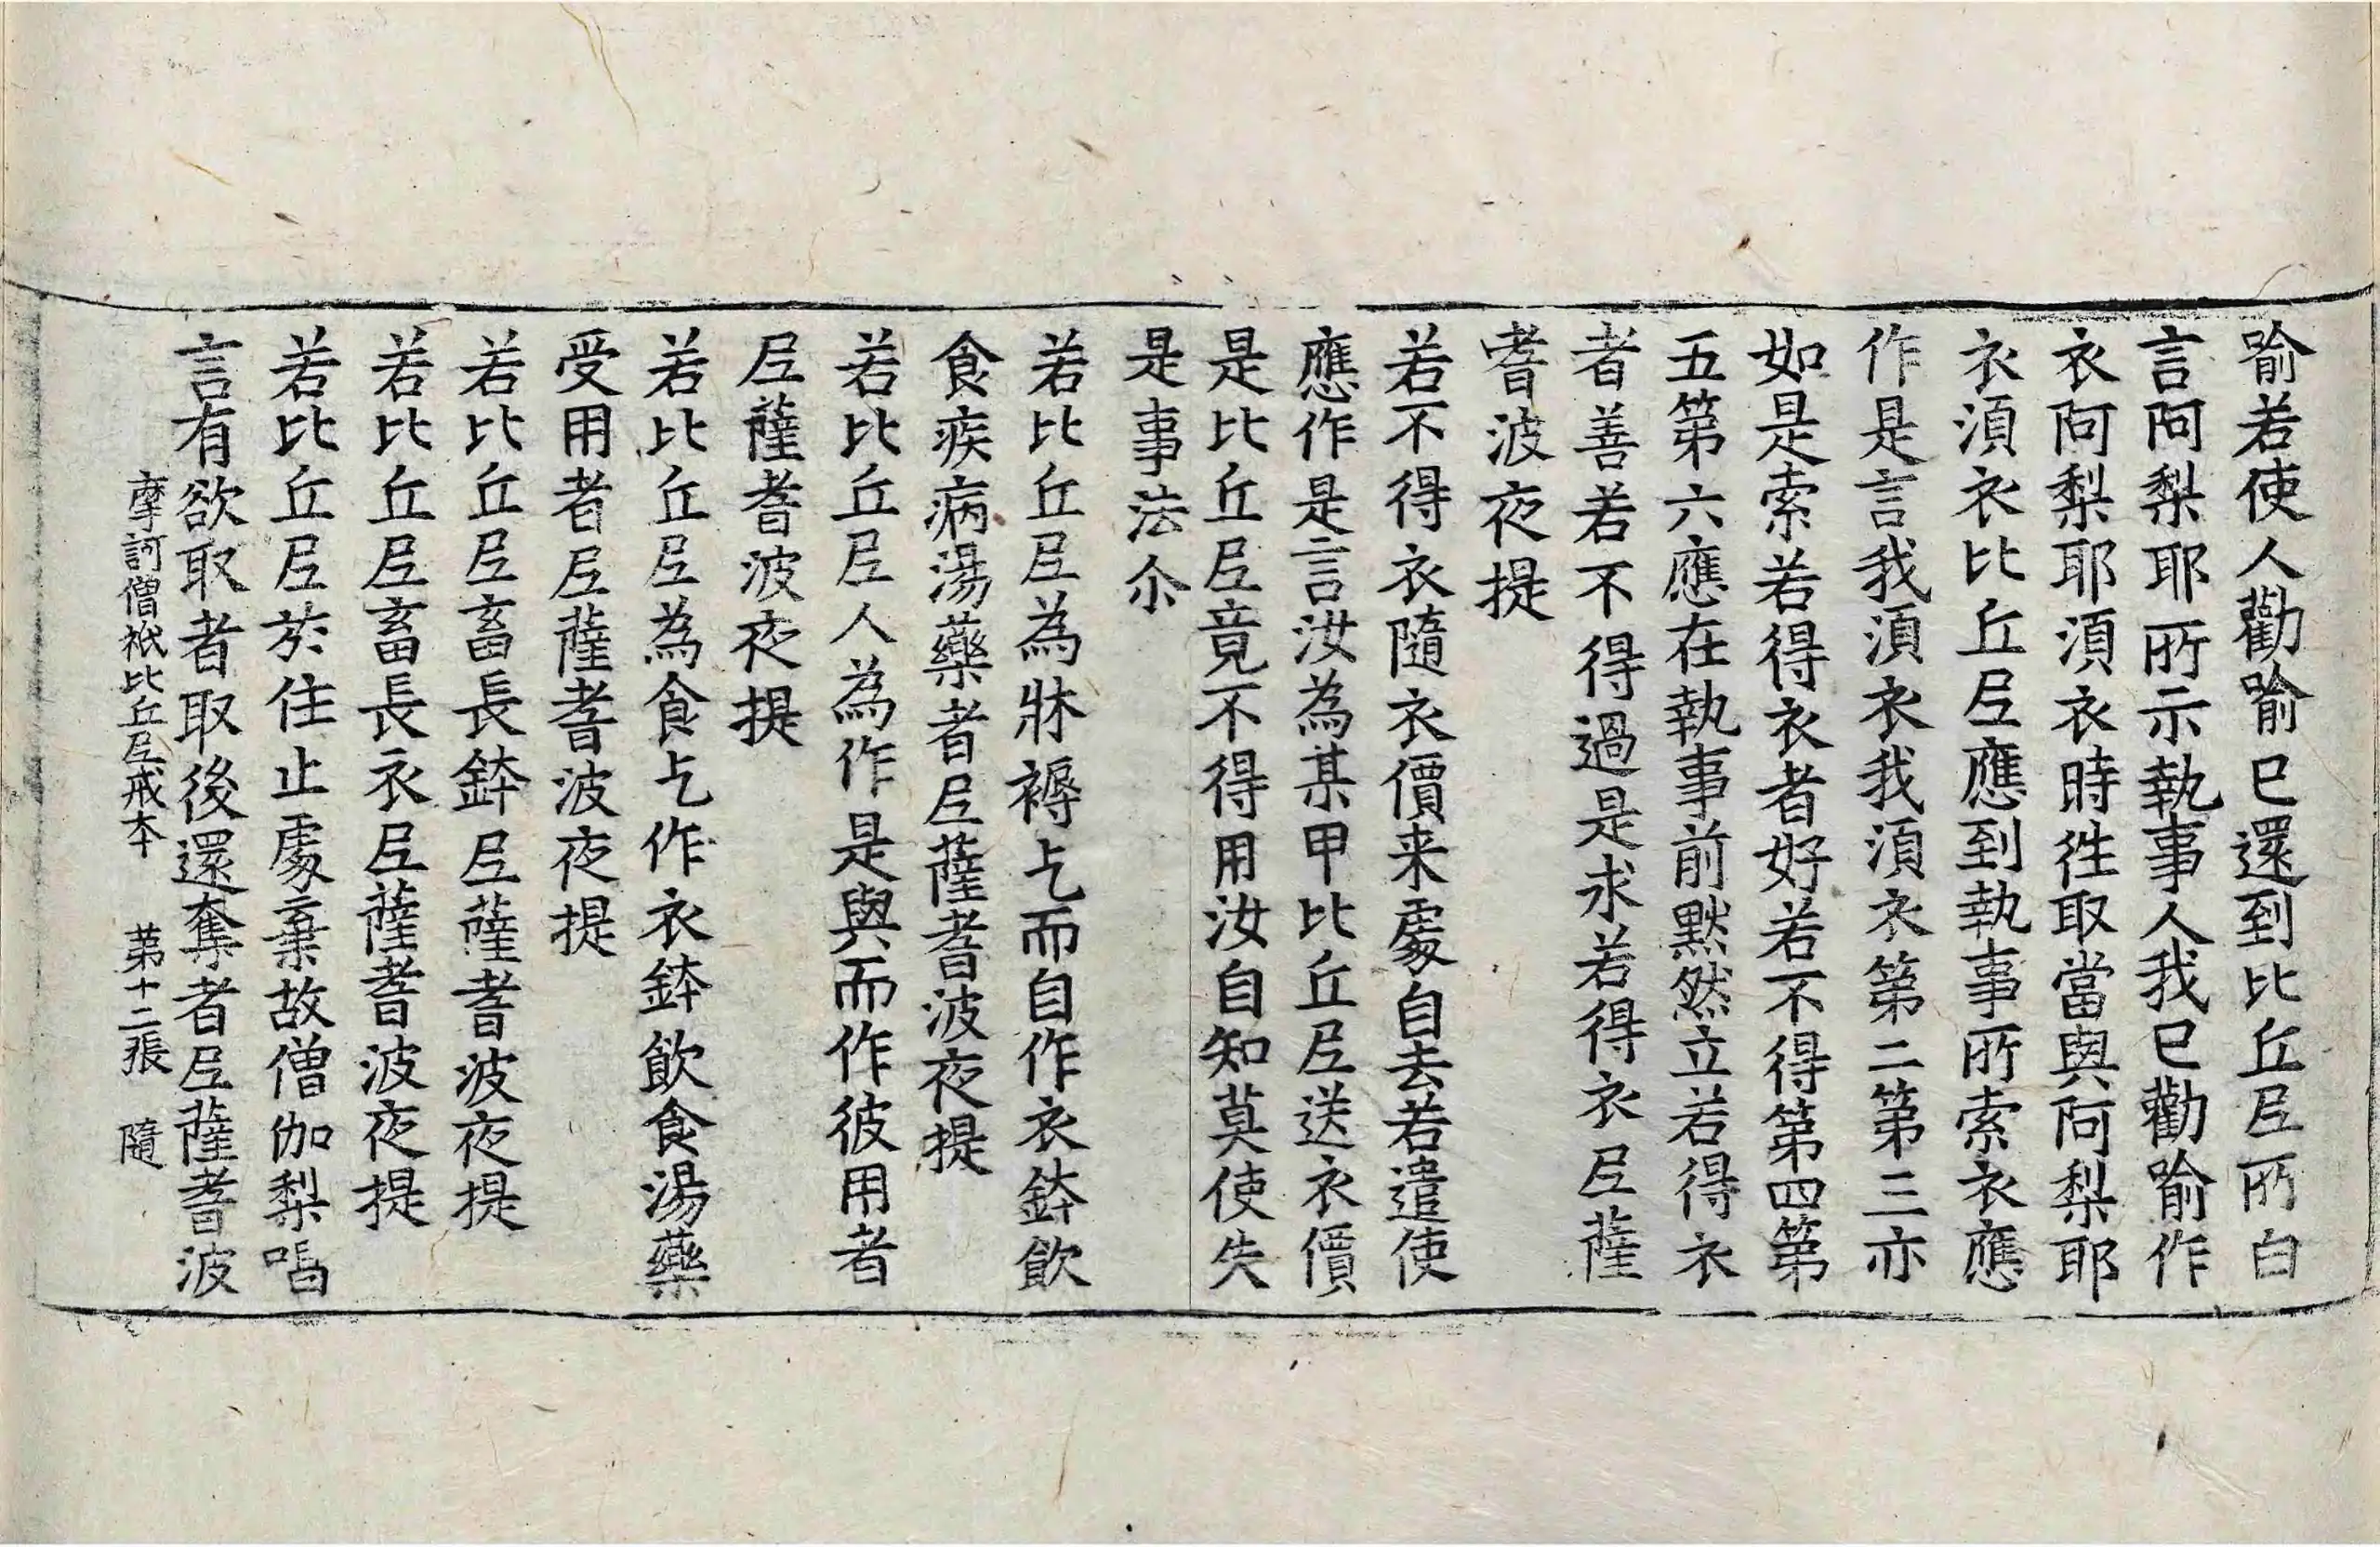 喻若使人勸喻已還到比丘尼所白
言阿梨耶所示執事人我已勸喻作
衣阿梨耶湏衣時徃取當與阿梨耶
衣湏衣比丘尼應到執事所索衣應
作是言我湏衣我湏衣第二第三亦
如是索若得衣者好若不得第四第
五第六應在執事前默然立若得衣
者善若不得過是求若得衣尼薩
耆波夜提
若不得衣隨衣價来處自去若遣使
應作是言汝為某甲比丘尼送衣價
是比丘尼竟不得用汝自知莫使失
是事法尒
若比丘尼為牀褥乞而自作衣鉢飲
食疾病湯藥者尼薩耆波夜提
若比丘尼人為作是與而作彼用者
尼薩耆波夜提
若比丘尼為食乞作衣鉢飲食湯藥
受用者尼薩耆波夜提
若比丘尼畜長鉢尼薩耆波夜提
若比丘尼畜長衣尼薩耆波夜提
若比丘尼於住止處棄故僧伽梨唱
言有欲取者取後還奪者尼薩耆波
摩訶僧祇比丘尼戒本　第十二張　隨